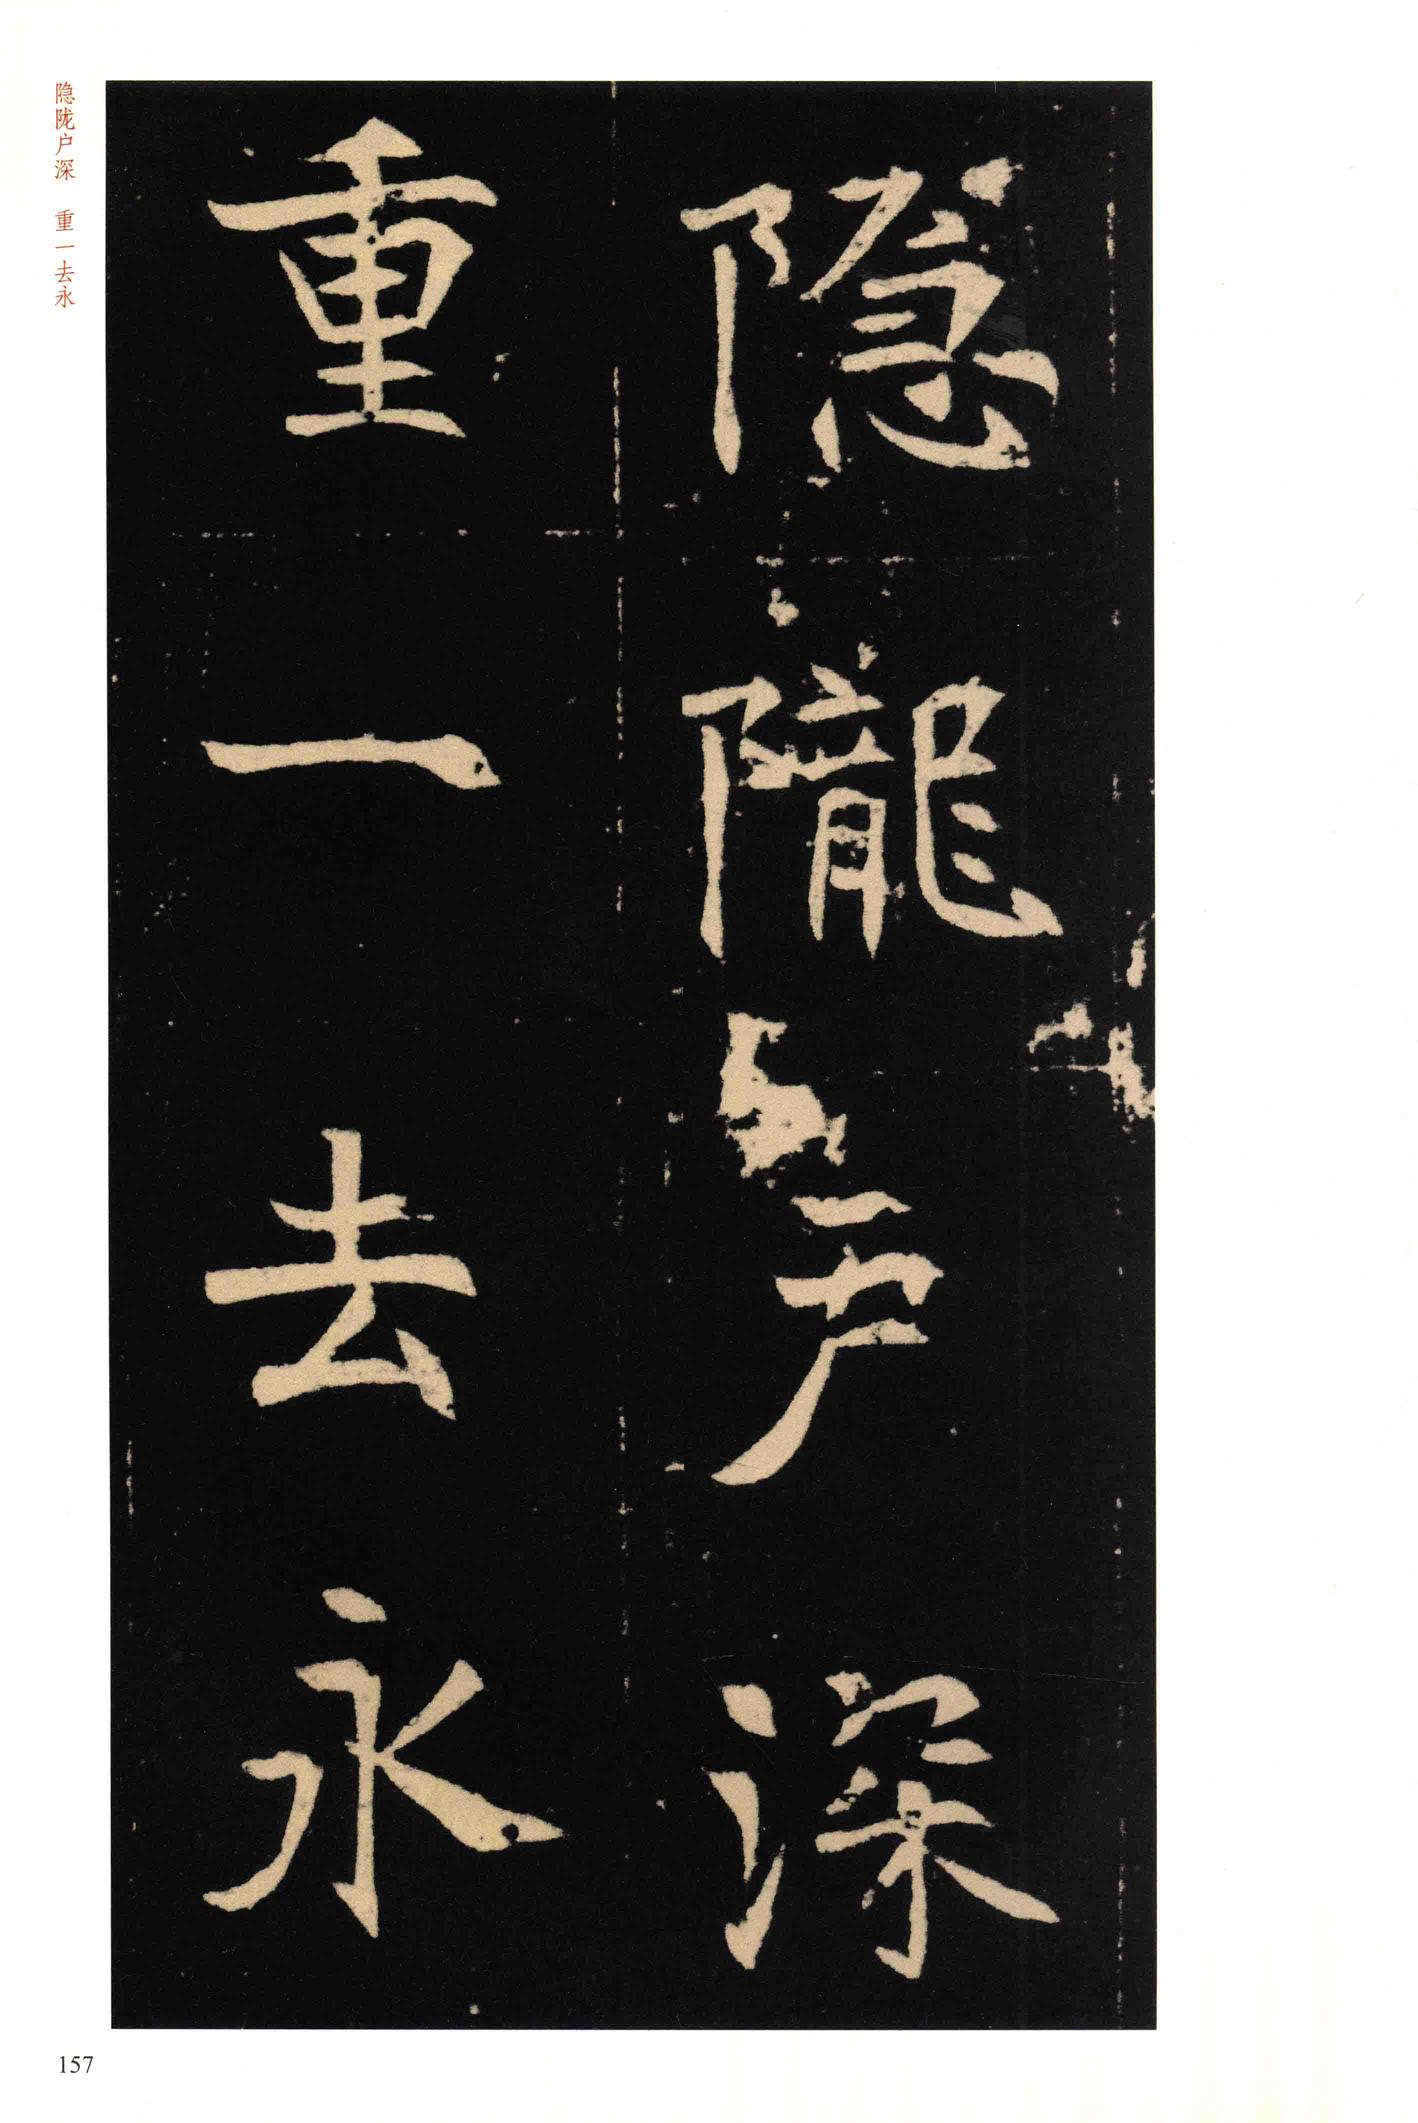 隐陇户深　重一去永
隐隴户深
重一去永
157